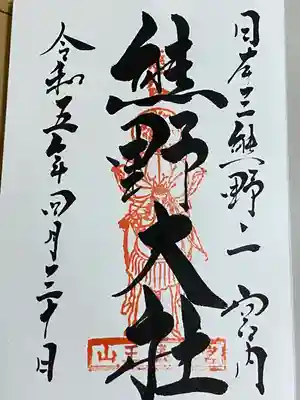 日本三熊野之一 宮内
熊野大社
令和五年四月三十日